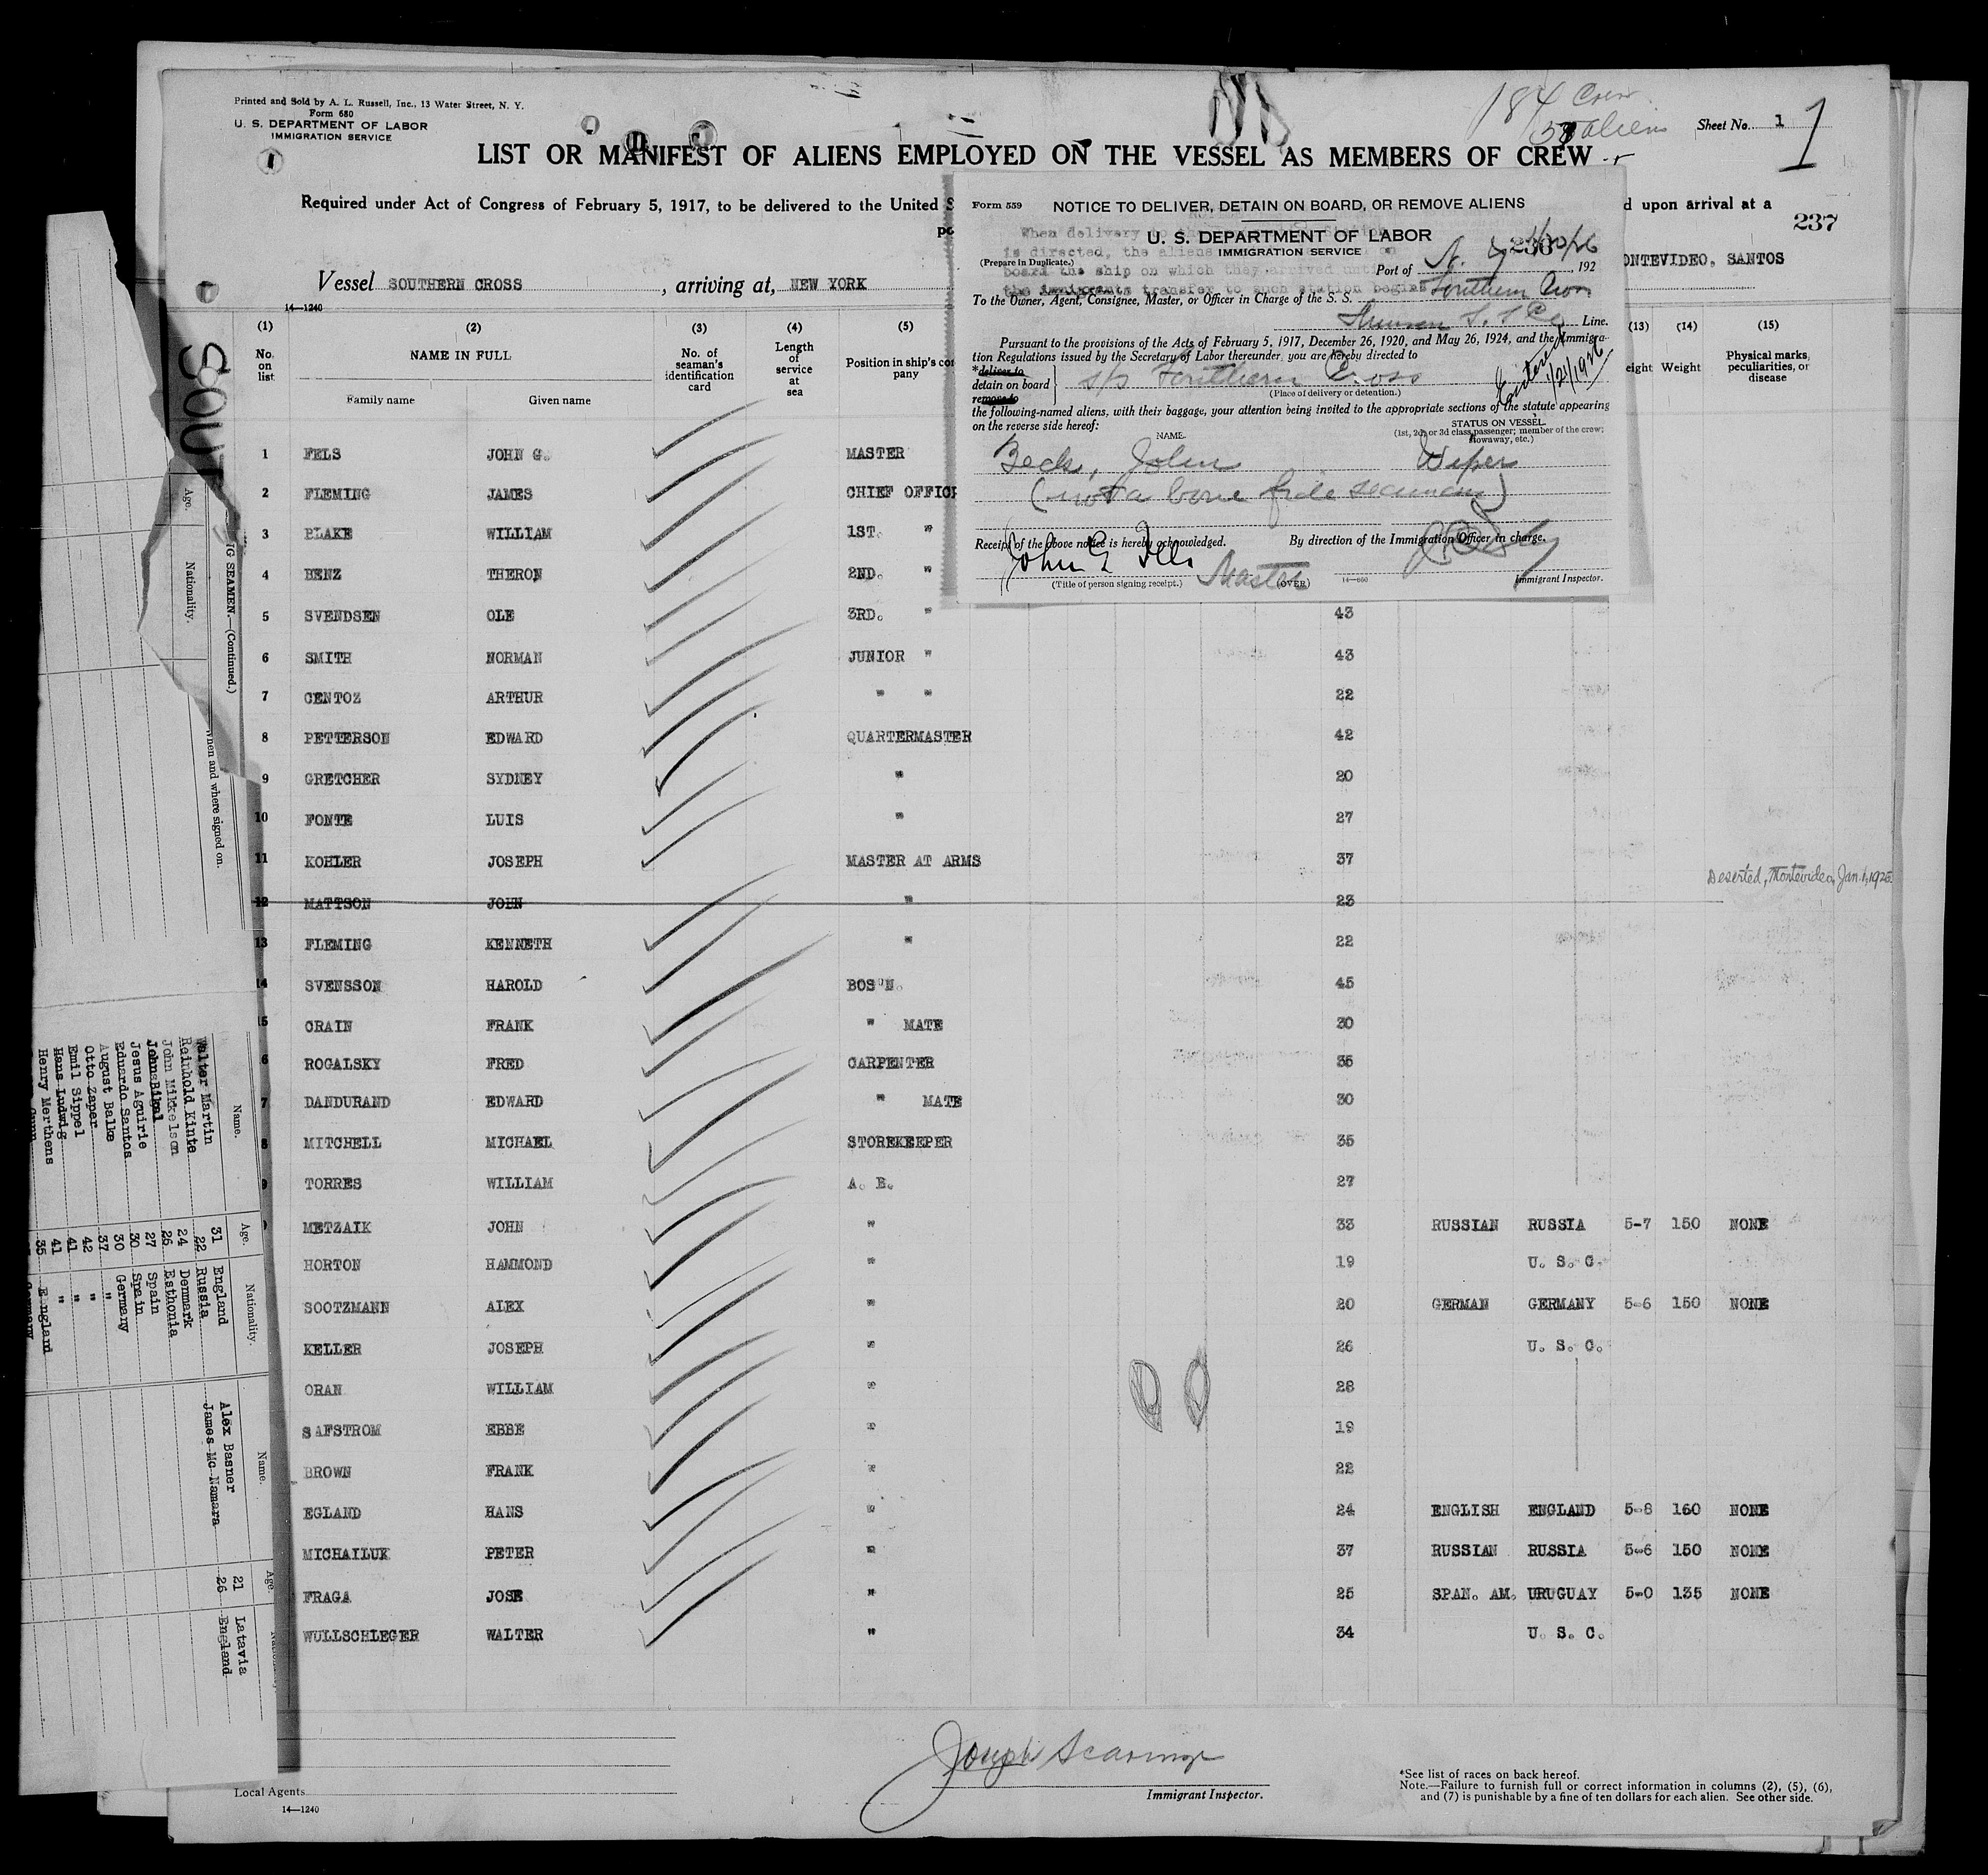 Printed and Sold by A. L. Russell, Inc., 13 Water Street, N. Y.
Form 680
U. S. DEPARTMENT OF LABOR
IMMIGRATION SERVICE
184 Crew
aliens
Sheet No. 1
1
LIST OR MANIFEST OF ALIENS EMPLOYED ON THE VESSEL AS MEMBERS OF CREW
Required under Act of Congress of February 5, 1917, to be delivered to the United S
d upon arrival at a
237
Vessel SOUTHERN CROSS, arriving at, NEW YORK
ONTEVIDEO, SANTOS
14—1240
Form 559
NOTICE TO DELIVER, DETAIN ON BOARD, OR REMOVE ALIENS
U. S. DEPARTMENT OF LABOR
IMMIGRATION SERVICE
236
(Prepare in Duplicate.)
When delivery to
is directed, the aliens
board the ship on which they arrived until
the immigrants transfer to such station begins
Port of N. Y. 192
To the Owner, Agent, Consignee, Master, or Officer in Charge of the S. S. Southern Cross
Munson S. S. Co Line.
Pursuant to the provisions of the Acts of February 5, 1917, December 26, 1920, and May 26, 1924, and the Immigra-
tion Regulations issued by the Secretary of Labor thereunder, you are hereby directed to
*deliver to
detain on board
remove to
s/s Southern Cross
(Place of delivery or detention.)
Entered 1/21/1926
the following-named aliens, with their baggage, your attention being invited to the appropriate sections of the statute appearing
on the reverse side hereof:
NAME.
STATUS ON VESSEL.
(1st, 2d, or 3d class passenger; member of the crew;
stowaway, etc.)
Beck, John Wiper
(not a bona fide seaman)
Receipt of the above notice is hereby acknowledged.
By direction of the Immigration Officer in charge.
John G Fels Master
(Title of person signing receipt.)
(OVER)
14—660
Immigrant Inspector.
(1) (2) (3) (4) (5) (13) (14) (15)
No. on list
NAME IN FULL
Family name Given name
No. of seaman's identification card
Length of service at sea
Position in ship's com-
pany
eight Weight
Physical marks, peculiarities, or disease
1 FELS JOHN G. MASTER
2 FLEMING JAMES CHIEF OFFICE
3 BLAKE WILLIAM 1ST. "
4 BENZ THERON 2ND. "
5 SVENDSEN OLE 3RD. " 43
6 SMITH NORMAN JUNIOR " 43
7 CENTOZ ARTHUR " " 22
8 PETTERSON EDWARD QUARTERMASTER 42
9 GRETCHER SYDNEY " 20
10 FONTE LUIS " 27
11 KOHLER JOSEPH MASTER AT ARMS 37
12 MATTSON JOHN " 23 Deserted, Montevideo, Jan. 1, 192
13 FLEMING KENNETH " 22
14 SVENSSON HAROLD BOS'N. 45
5 CRAIN FRANK " MATE 30
6 ROGALSKY FRED CARPENTER 35
7 DANDURAND EDWARD " MATE 30
8 MITCHELL MICHAEL STOREKEEPER 35
9 TORRES WILLIAM A. B. 27
METZAIK JOHN " 33 RUSSIAN RUSSIA 5-7 150 NONE
HORTON HAMMOND " 19 U. S. C.
SOOTZMANN ALEX " 20 GERMAN GERMANY 5-6 150 NONE
KELLER JOSEPH " 26 U. S. C.
ORAN WILLIAM " 28
SAFSTROM EBBE " 19
BROWN FRANK " 22
EGLAND HANS " 24 ENGLISH ENGLAND 5-8 160 NONE
MICHAILUK PETER " 37 RUSSIAN RUSSIA 5-6 150 NONE
FRAGA JOSE " 25 SPAN. AM. URUGUAY 5-0 135 NONE
WULLSCHLEGER WALTER " 34 U. S. C.
Joseph
Immigrant Inspector.
Local Agents
14—1240
*See list of races on back hereof.
Note.—Failure to furnish full or correct information in columns (2), (5), (6),
and (7) is punishable by a fine of ten dollars for each alien. See other side.
SOUT
G SEAMEN.—(Continued.)
Age.
Nationality.
When and where signed on.
Name. Age. Nationality.
Walter Martin 31 England
Reinhold Kinte 22 Russia
John Mikkelson 24 Denmark
John Bikal 26 Esthonia
Jesus Aguirie 27 Spain
Eduardo Santos 30 Spain
August Balke 30 Germany
Otto Zaper 37 "
Emil Sippel 42 "
Hans Ludwig 41 "
Henry Merthens 41 "
35 England
Name. Age.
Alex Basner 21 Latavia
James Mc Namara 26 England